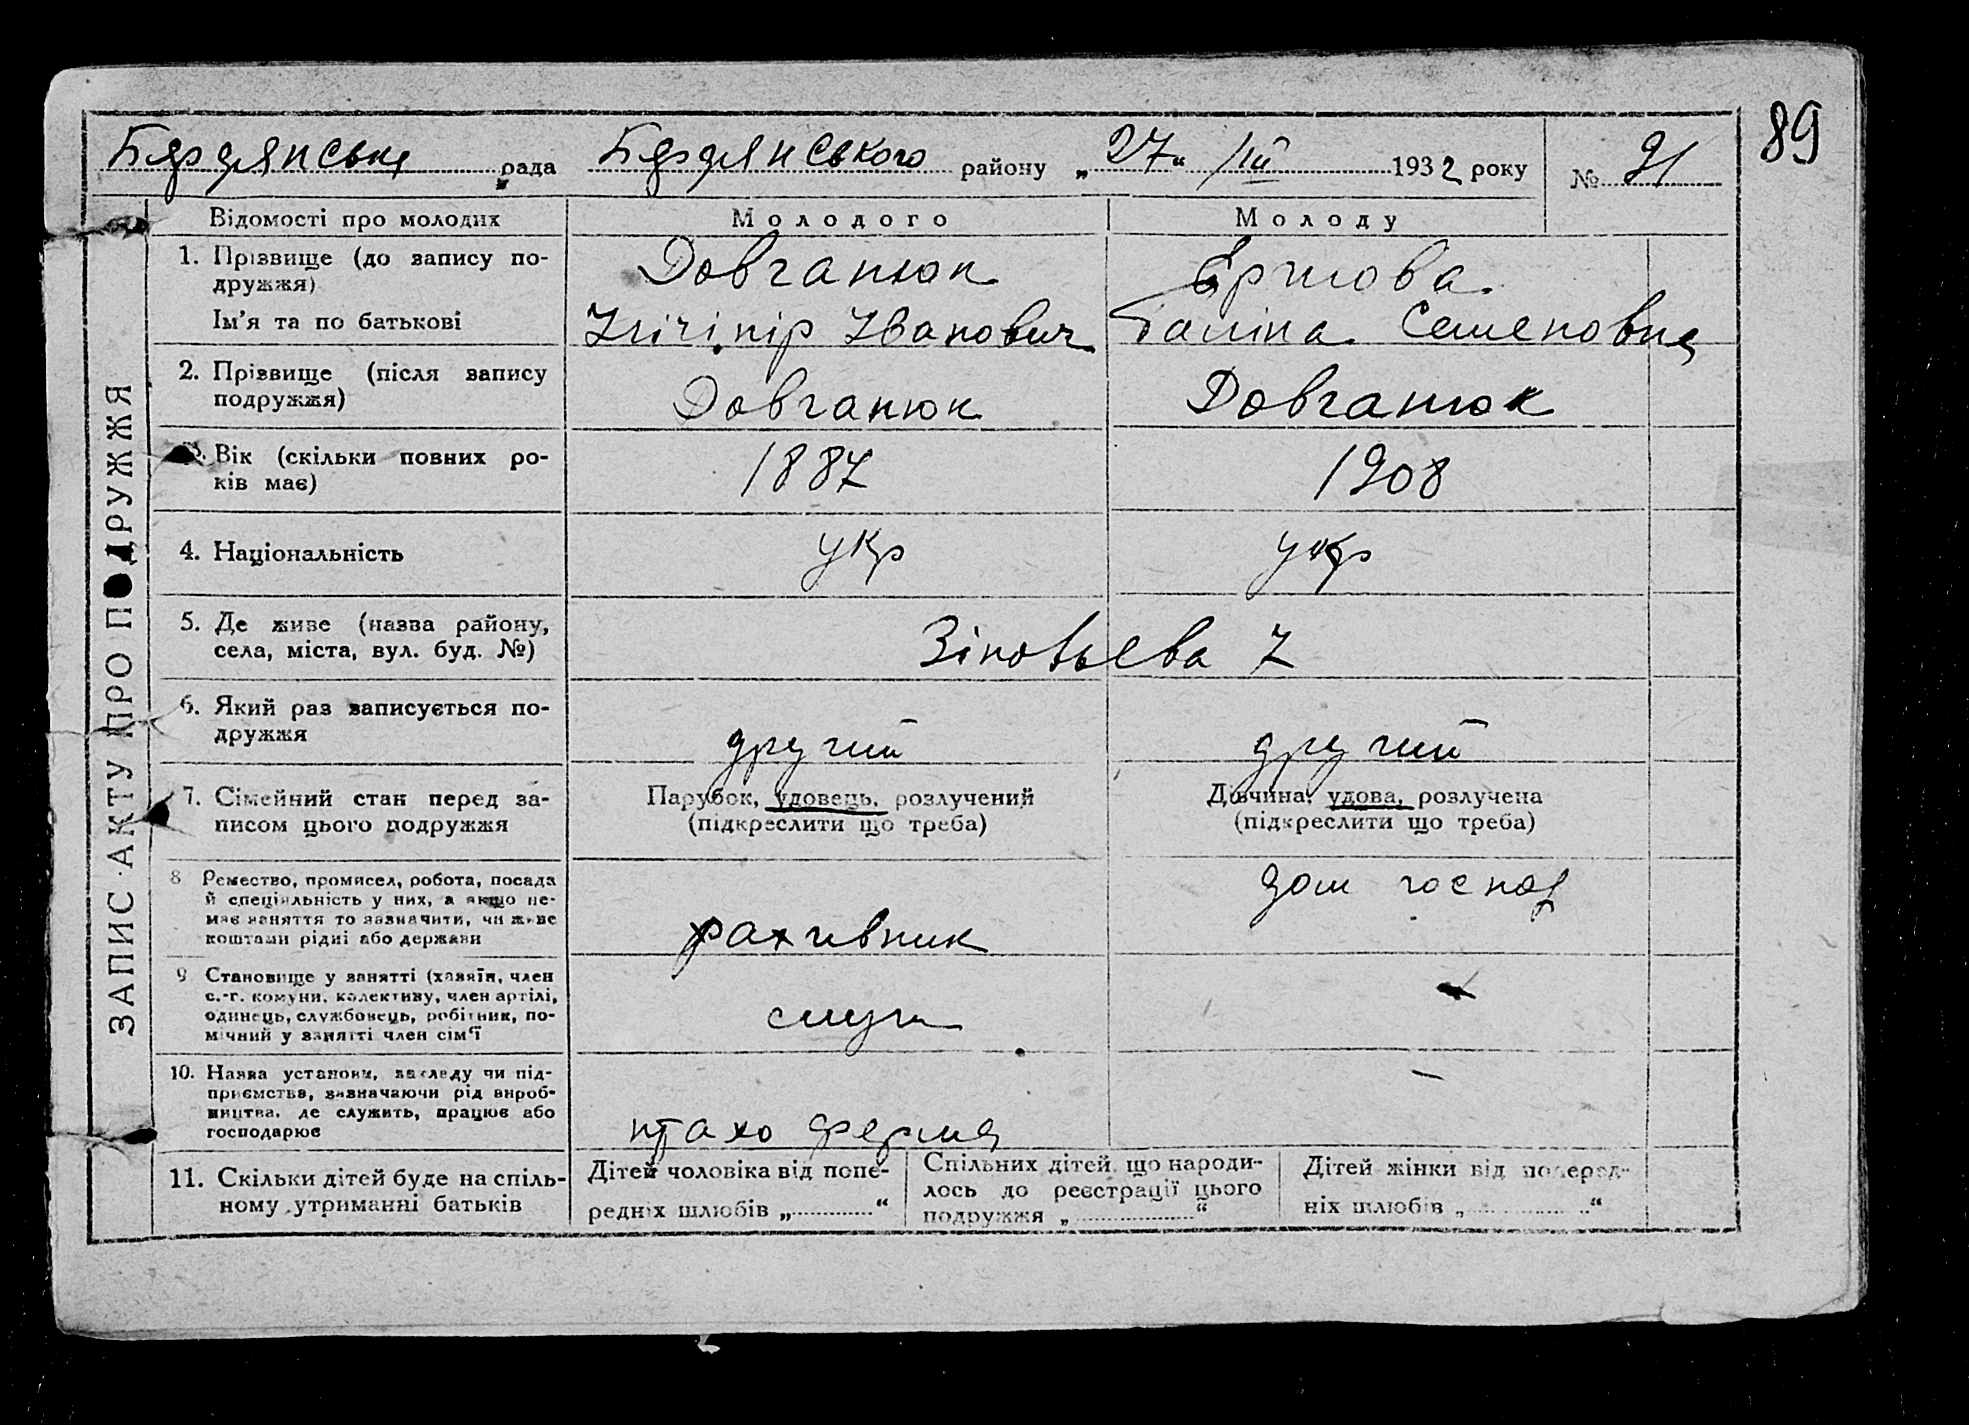 89
Бердянська рада Бердянського району „27“ III 1932 року № 91
ЗАПИС АКТУ ПРО ПОДРУЖЖЯ
Відомості про молодих
Молодого
Молоду
1. Прізвище (до запису по-
дружжя)
Довганюк
Єршова
Ім’я та по батькові
Нічіпір Іванович
Галіна Семеновна
2. Прізвище (після запису
подружжя)
Довганюк
Довганюк
3. Вік (скільки повних ро-
ків має)
1887
1908
4. Національність
укр
укр
5. Де живе (назва району,
села, міста, вул. буд. №)
Зіновьева 7
6. Який раз записується по-
дружжя
другий
другий
7. Сімейний стан перед за-
писом цього подружжя
Парубок, удовець, розлучений
(підкреслити що треба)
Дівчина, удова, розлучена
(підкреслити що треба)
8 Ремество, промисел, робота, посада
й спеціяльність у них, а якщо не-
має заняття то зазначити, чи живе
коштами рідні або держави
рахивник
дом господ
9 Становище у занятті (хазяїн, член
с.-г. комуни, колективу, член артілі,
одинець, службовець, робітник, по-
мічний у занятті член сім’ї
служ
10. Назва установи, закладу чи під-
приємства, зазначаючи рід вироб-
ництва, де служить, працює або
господарює
птахо ферма
–
11. Скільки дітей буде на спіль-
ному утриманні батьків
Дітей чоловіка від попе-
редніх шлюбів „..............“
Спільних дітей, що народи-
лось до реєстрації цього
подружжя „..............“
Дітей жінки від поперед-
ніх шлюбів „..............“